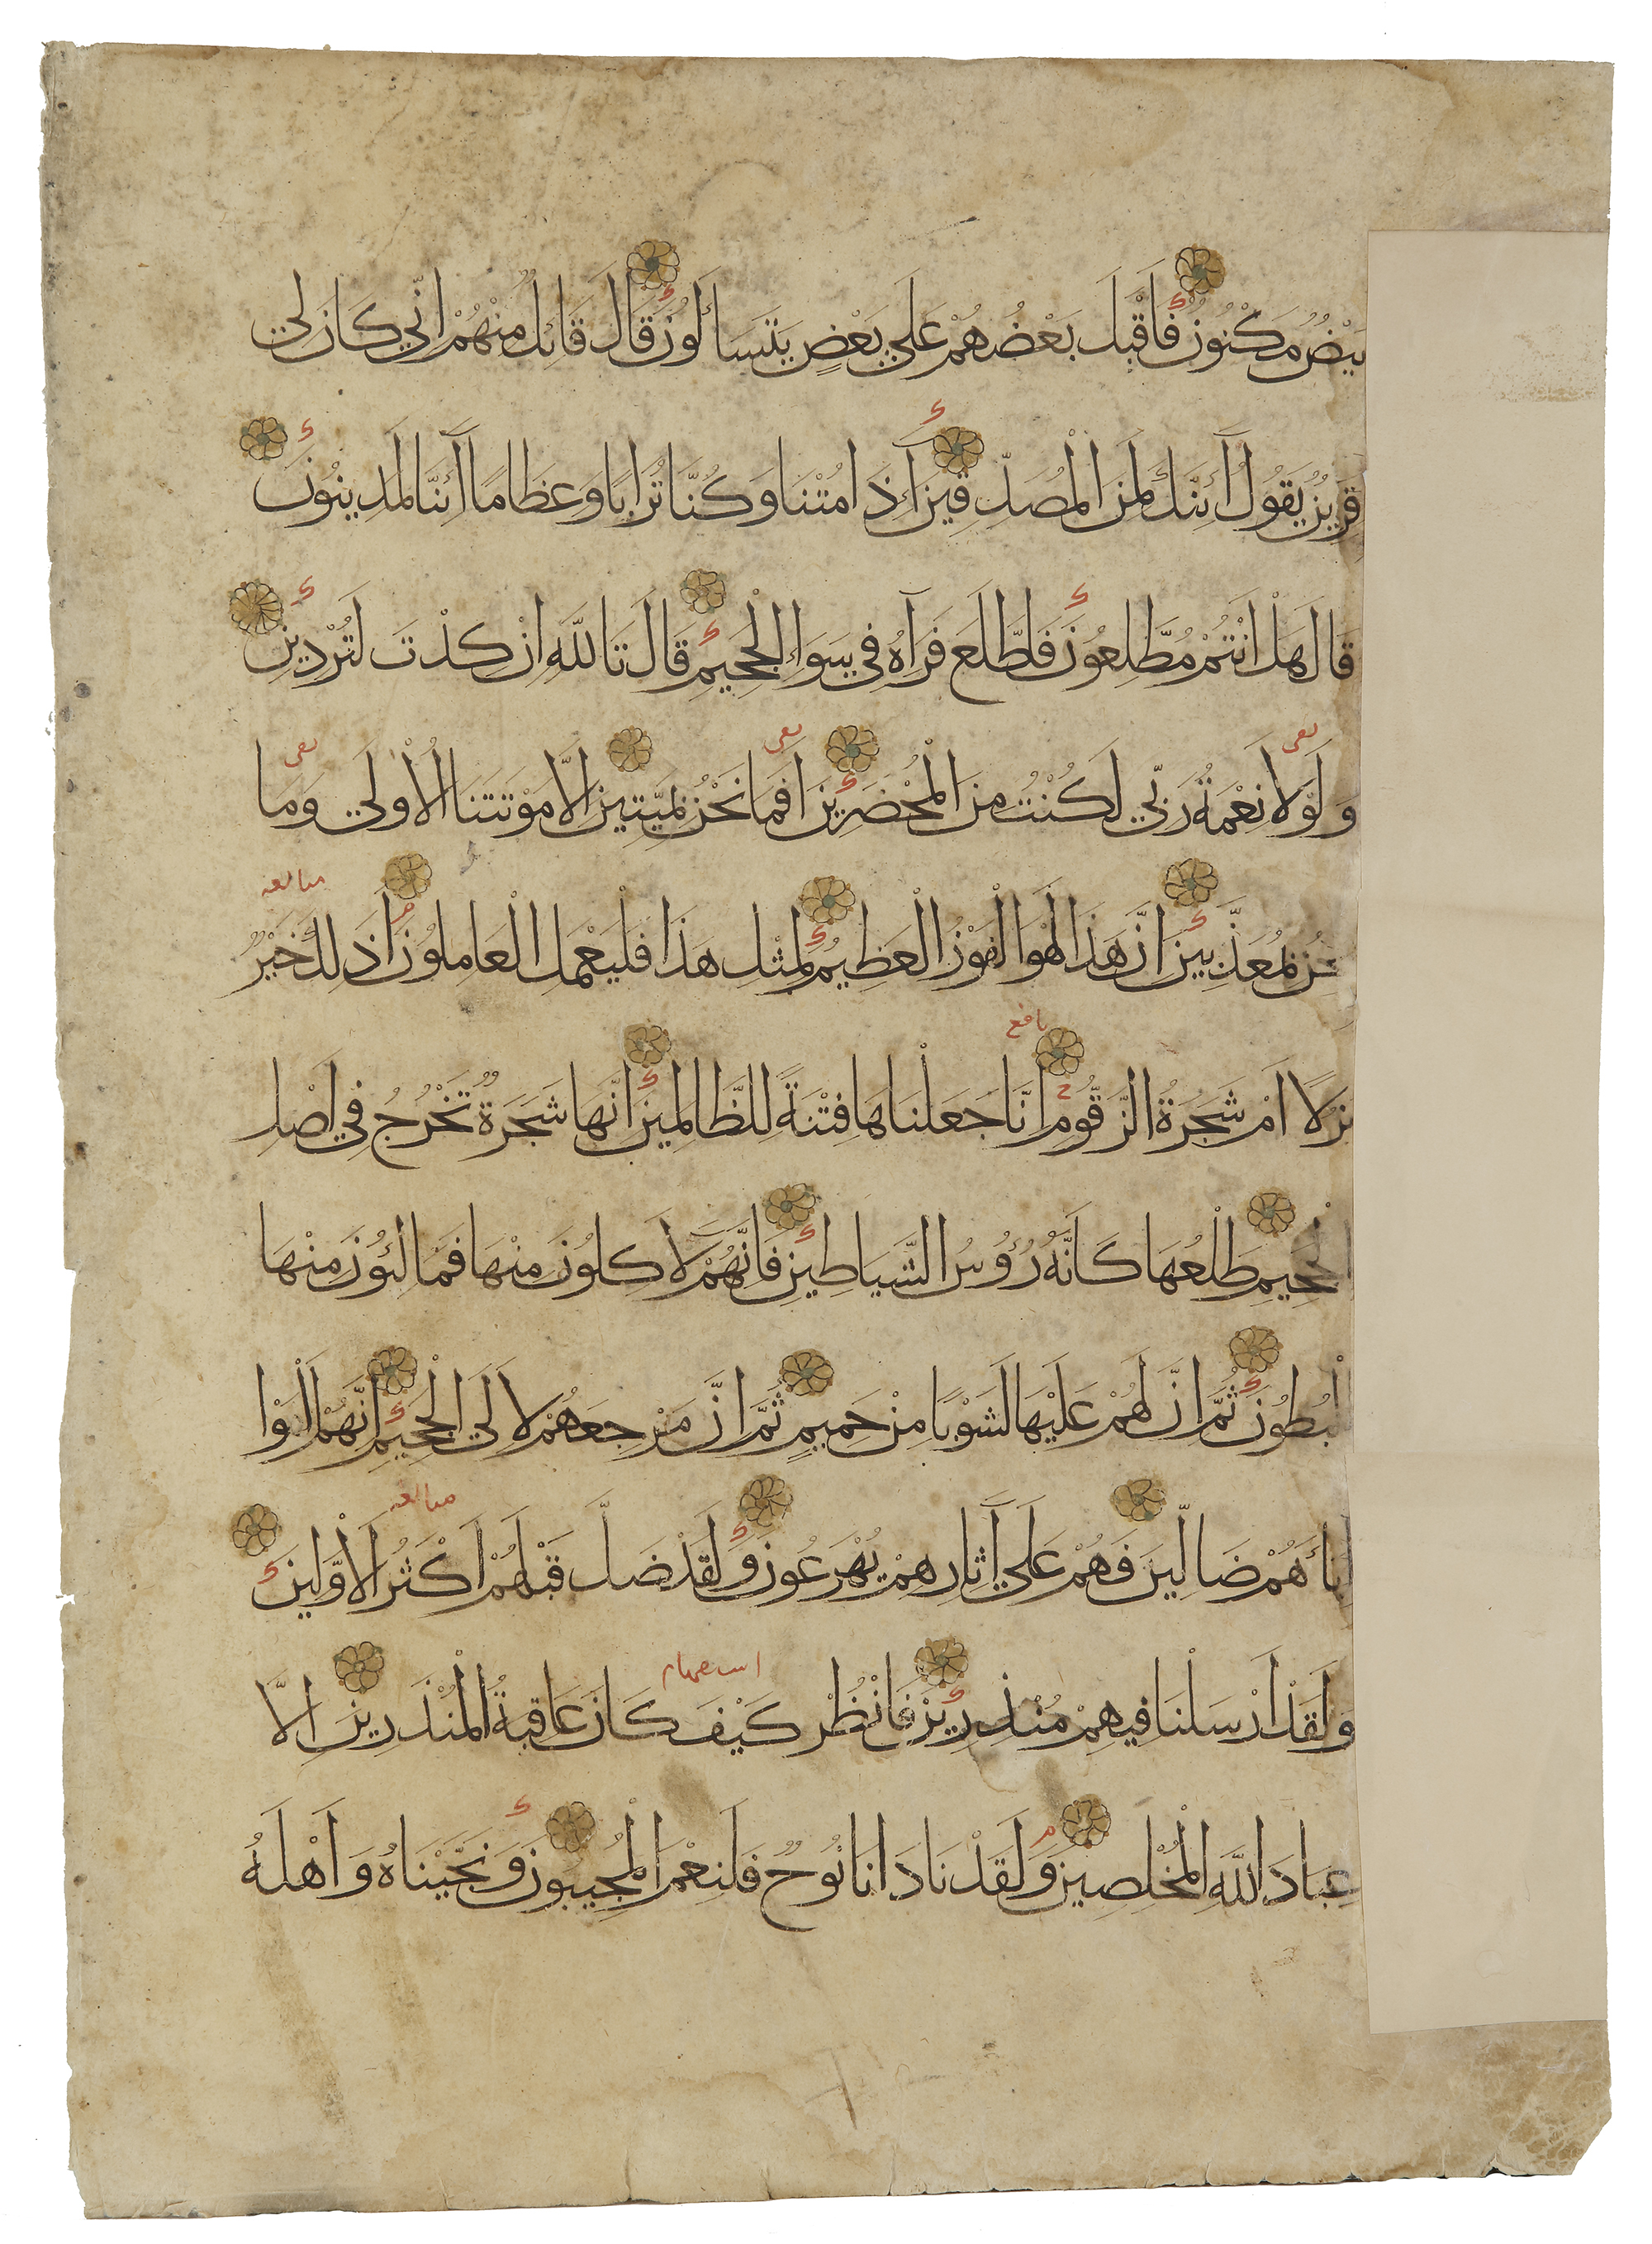 بَيْضٌ مَكْنُونٌ فَاَقْبَلَ بَعْضُهُمْ عَلَي بَعْضٍ يَتَسَائَلُونَ قَالَ قَائِلٌ مِنْهُمْ اِنِّي كَانَ لِي
قَرِينٌ يَقُولُ آئِنَّكَ لَمِنَ الْمُصَدِّقِينَ آَئِذَا مُتْنَا وَكُنَّا تُرَابًا وَعِظَامًا آَئِنَّا لَمَدِينُونَ
قَالَ هَلْ اَنْتُمْ مُطَّلِعُونَ فَاطَّلَعَ فَرَآهُ فِي سَوَاءِ الْجَحِيمِ قَالَ تَاللَّهِ اِنْ كِدْتَ لَتُرْدِينِ
وَلَوْلَا نِعْمَةُ رَبِّي لَكُنْتُ مِنَ الْمُحْضَرِينَ اَفَمَا نَحْنُ بِمَيِّتِينَ اِلَّا مَوْتَتَنَا الْاُولَي وَمَا
نَحْنُ بِمُعَذَّبِينَ اِنَّ هَذَا لَهُوَ الْفَوْزُ الْعَظِيمُ لِمِثْلِ هَذَا فَلْيَعْمَلِ الْعَامِلُونَ اَذَلِكَ خَيْرٌ
نُزُلًا اَمْ شَجَرَةُ الزَّقُّومِ اِنَّا جَعَلْنَاهَا فِتْنَةً لِلظَّالِمِينَ اِنَّهَا شَجَرَةٌ تَخْرُجُ فِي اَصْلِ
الْجَحِيمِ طَلْعُهَا كَاَنَّهُ رُؤُسُ الشَّيَاطِينِ فَاِنَّهُمْ لَآكِلُونَ مِنْهَا فَمَالِئُونَ مِنْهَا
الْبُطُونَ ثُمَّ اِنَّ لَهُمْ عَلَيْهَا لَشَوْبًا مِنْ حَمِيمٍ ثُمَّ اِنَّ مَرْجِعَهُمْ لَاِلَي الْجَحِيمِ اِنَّهُمْ اَلْفَوْا
اَبَاءَهُمْ ضَالِّينَ فَهُمْ عَلَي آثَارِهِمْ يُهْرَعُونَ وَلَقَدْ ضَلَّ قَبْلَهُمْ اَكْثَرُ الْاَوَّلِينَ
وَلَقَدْ اَرْسَلْنَا فِيهِمْ مُنْذِرِينَ فَانْظُرْ كَيْفَ كَانَ عَاقِبَةُ الْمُنْذَرِينَ اِلَّا
عِبَادَ اللَّهِ الْمُخْلِصِينَ وَلَقَدْ نَادَانَا نُوحٌ فَلَنِعْمَ الْمُجِيبُونَ وَنَجَّيْنَاهُ وَاَهْلَهُ